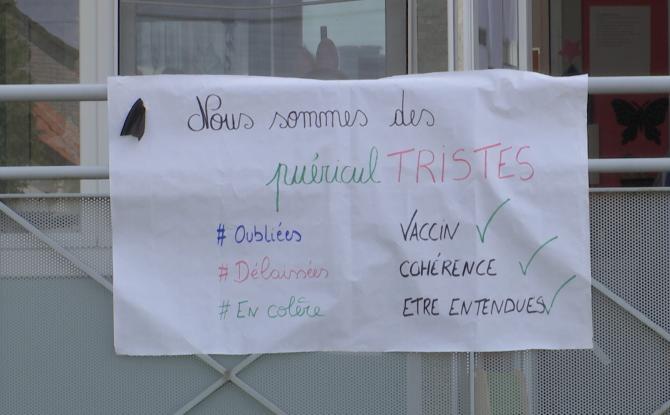 Nous sommes des
puériculTRISTES
# Oubliées
# Délaissées
# En colère
VACCIN ✓
COHÉRENCE ✓
ETRE ENTENDUES ✓